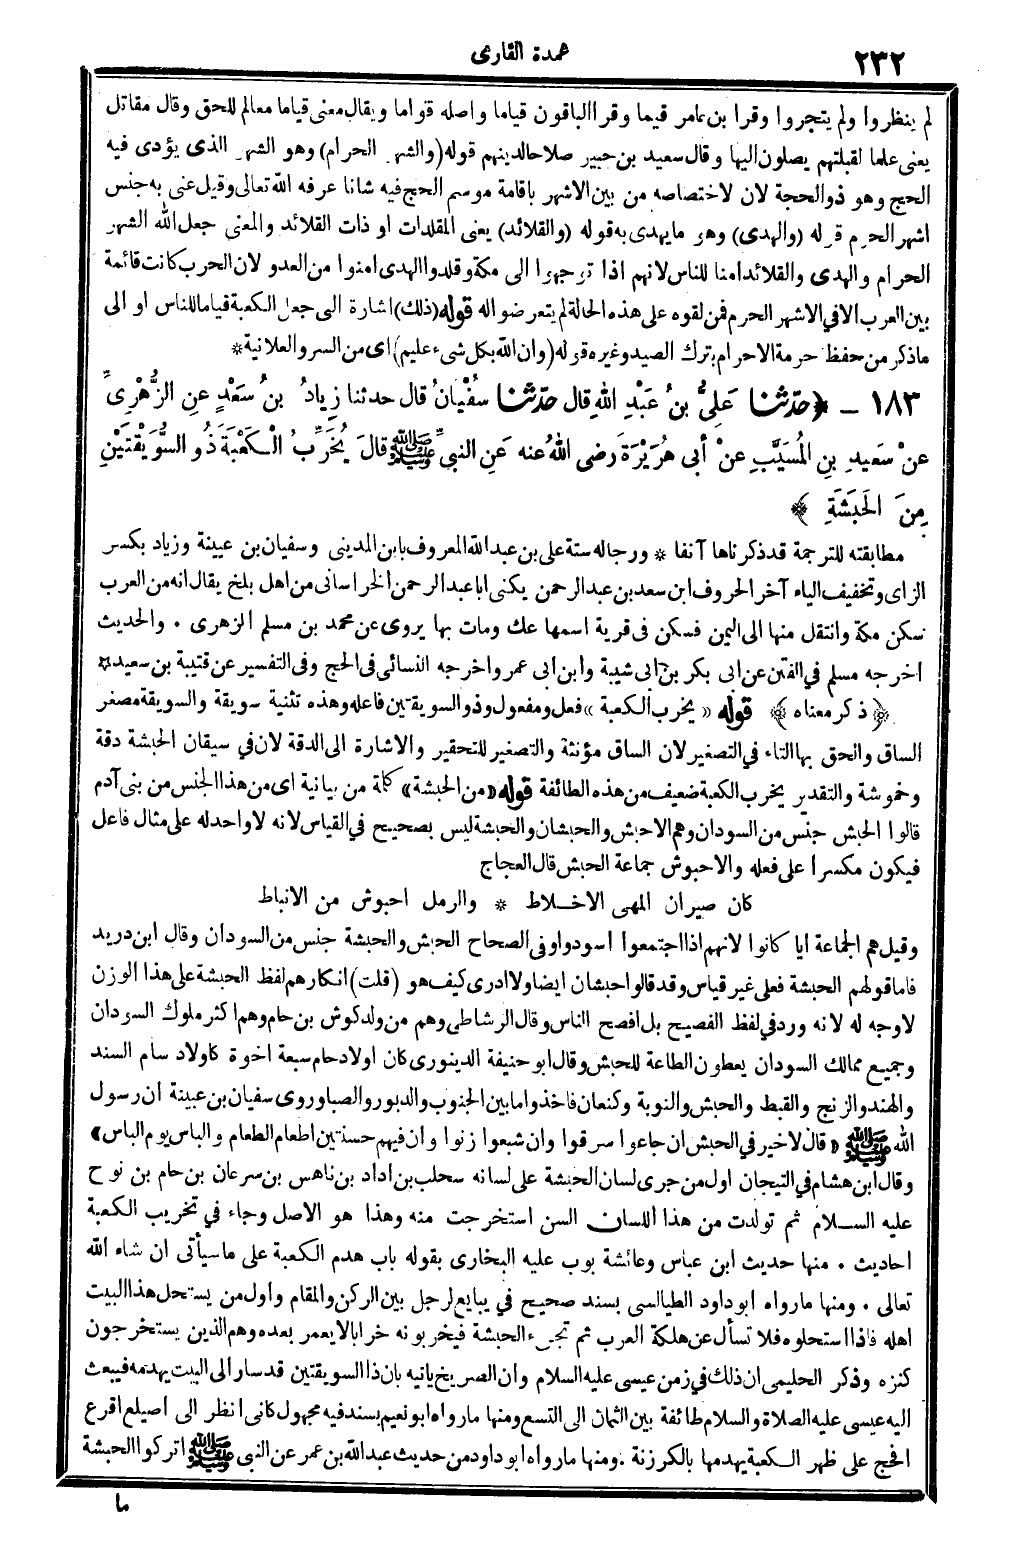 ٢٣٢
عمدة القارى
لم ينظروا ولم يتجروا وقرا بن عامر قيما وقرا الباقون قياما واصله قواما ويقال معنى قياما معالم للحق وقال مقاتل
يعنى علما لقبلتهم يصلون اليها وقال سعيد بن جبير صلاحا لدينهم قوله (والشهر الحرام) وهو الشهر الذى يؤدى فيه
الحج وهو ذو الحجة لان لاختصاصه من بين الاشهر باقامة موسم الحج فيه شانا عرفه الله تعالى وقيل عنى به جنس
اشهر الحرم قوله (والهدى) وهو ما يهدى به قوله (والقلائد) يعنى المقلدات او ذات القلائد والمعنى جعل الله الشهر
الحرام والهدى والقلائد امنا للناس لانهم اذا توجهوا الى مكة وقلدوا الهدى امنوا من العدو لان الحرب كانت قائمة
بين العرب الا فى الاشهر الحرم فمن لقوه على هذه الحالة لم يتعرضوا له قوله (ذلك) اشارة الى جعل الكعبة قياما للناس او الى
ما ذكر من حفظ حرمة الاحرام بترك الصيد وغيره قوله (وان الله بكل شىء عليم) اى من السر والعلانية *
١٨٣ ــ ﴿حَدَّثنا عَلِىُّ بنُ عَبْدِ اللهِ قال حَدَّثنا سُفْيَانُ قال حدثنا زِيادُ بنُ سَعْدٍ عنِ الزُّهْرِىِّ
عنْ سَعِيدِ بنِ المُسَيَّبِ عنْ أبى هُرَيْرَةَ رضى اللهُ عنه عَنِ النبىِّ ﷺ قالَ يُخَرِّبُ الْكَعْبَةَ ذُو السُّوَيْقَتَيْنِ
مِنَ الحَبَشَةِ ﴾
مطابقته للترجمة قد ذكرناها آنفا * ورجاله ستة على بن عبد الله المعروف بابن المدينى وسفيان بن عيينة وزياد بكسر
الزاى وتخفيف الياء آخر الحروف ابن سعد بن عبد الرحمن يكنى ابا عبد الرحمن الخراسانى من اهل بلخ يقال انه من العرب
سكن مكة وانتقل منها الى اليمن فسكن فى قرية اسمها عك ومات بها يروى عن محمد بن مسلم الزهرى . والحديث
اخرجه مسلم فى الفتن عن ابى بكر بن ابى شيبة وابن ابى عمر واخرجه النسائى فى الحج وفى التفسير عن قتيبة بن سعيد *
﴿ذكر معناه﴾ قوله « يخرب الكعبة » فعل ومفعول وذو السويقتين فاعله وهذه تثنية سويقة والسويقة مصغر
الساق والحق بها التاء فى التصغير لان الساق مؤنثة والتصغير للتحقير والاشارة الى الدقة لان فى سيقان الحبشة دقة
وخموشة والتقدير يخرب الكعبة ضعيف من هذه الطائفة قوله «من الحبشة» كلمة من بيانية اى من هذا الجنس من بنى آدم
قالوا الحبش جنس من السودان وهم الاحبش والحبشان والحبشة ليس بصحيح فى القياس لانه لا واحد له على مثال فاعل
فيكون مكسرا على فعله والاحبوش جماعة الحبش قال العجاج
كان صيران المهى الاخلاط * والرمل احبوش من الانباط
وقيل هم الجماعة ايا كانوا لانهم اذا اجتمعوا اسودوا وفى الصحاح الحبش والحبشة جنس من السودان وقال ابن دريد
فاما قولهم الحبشة فعلى غير قياس وقد قالوا حبشان ايضا ولا ادرى كيف هو (قلت) انكارهم لفظ الحبشة على هذا الوزن
لا وجه له لانه ورد فى لفظ الفصيح بل افصح الناس وقال الرشاطى وهم من ولد كوش بن حام وهم اكثر ملوك السودان
وجميع ممالك السودان يعطون الطاعة للحبش وقال ابو حنيفة الدينورى كان اولاد حام سبعة اخوة كاولاد سام السند
والهند والزنج والقبط والحبش والنوبة وكنعان فاخذوا ما بين الجنوب والدبور والصبا وروى سفيان بن عيينة ان رسول
الله ﷺ «قال لا خير فى الحبش ان جاعوا سرقوا وان شبعوا زنوا وان فيهم حسنتين اطعام الطعام والباس يوم الباس»
وقال ابن هشام فى التيجان اول من جرى لسان الحبشة على لسانه سحلب بن اداد بن ناهس بن سرعان بن حام بن نوح
عليه السلام ثم تولدت من هذا اللسان السن استخرجت منه وهذا هو الاصل وجاء فى تخريب الكعبة
احاديث . منها حديث ابن عباس وعائشة بوب عليه البخارى بقوله باب هدم الكعبة على ما سيأتى ان شاء الله
تعالى . ومنها ما رواه ابو داود الطيالسى بسند صحيح فى يبايع لرجل بين الركن والمقام واول من يستحل هذا البيت
اهله فاذا استحلوه فلا تسأل عن هلكة العرب ثم تجىء الحبشة فيخربونه خرابا لا يعمر بعده وهم الذين يستخرجون
كنزه وذكر الحليمى ان ذلك فى زمن عيسى عليه السلام وان الصريخ ياتيه بان ذا السويقتين قد سار الى البيت يهدمه فيبعث
اليه عيسى عليه الصلاة والسلام طائفة بين الثمان الى التسع ومنها ما رواه ابو نعيم بسند فيه مجهول كانى انظر الى أصيلع اقرع
افحج على ظهر الكعبة يهدمها بالكرزنة . ومنها ما رواه ابو داود من حديث عبد الله بن عمر عن النبى ﷺ اتركوا الحبشة
ما